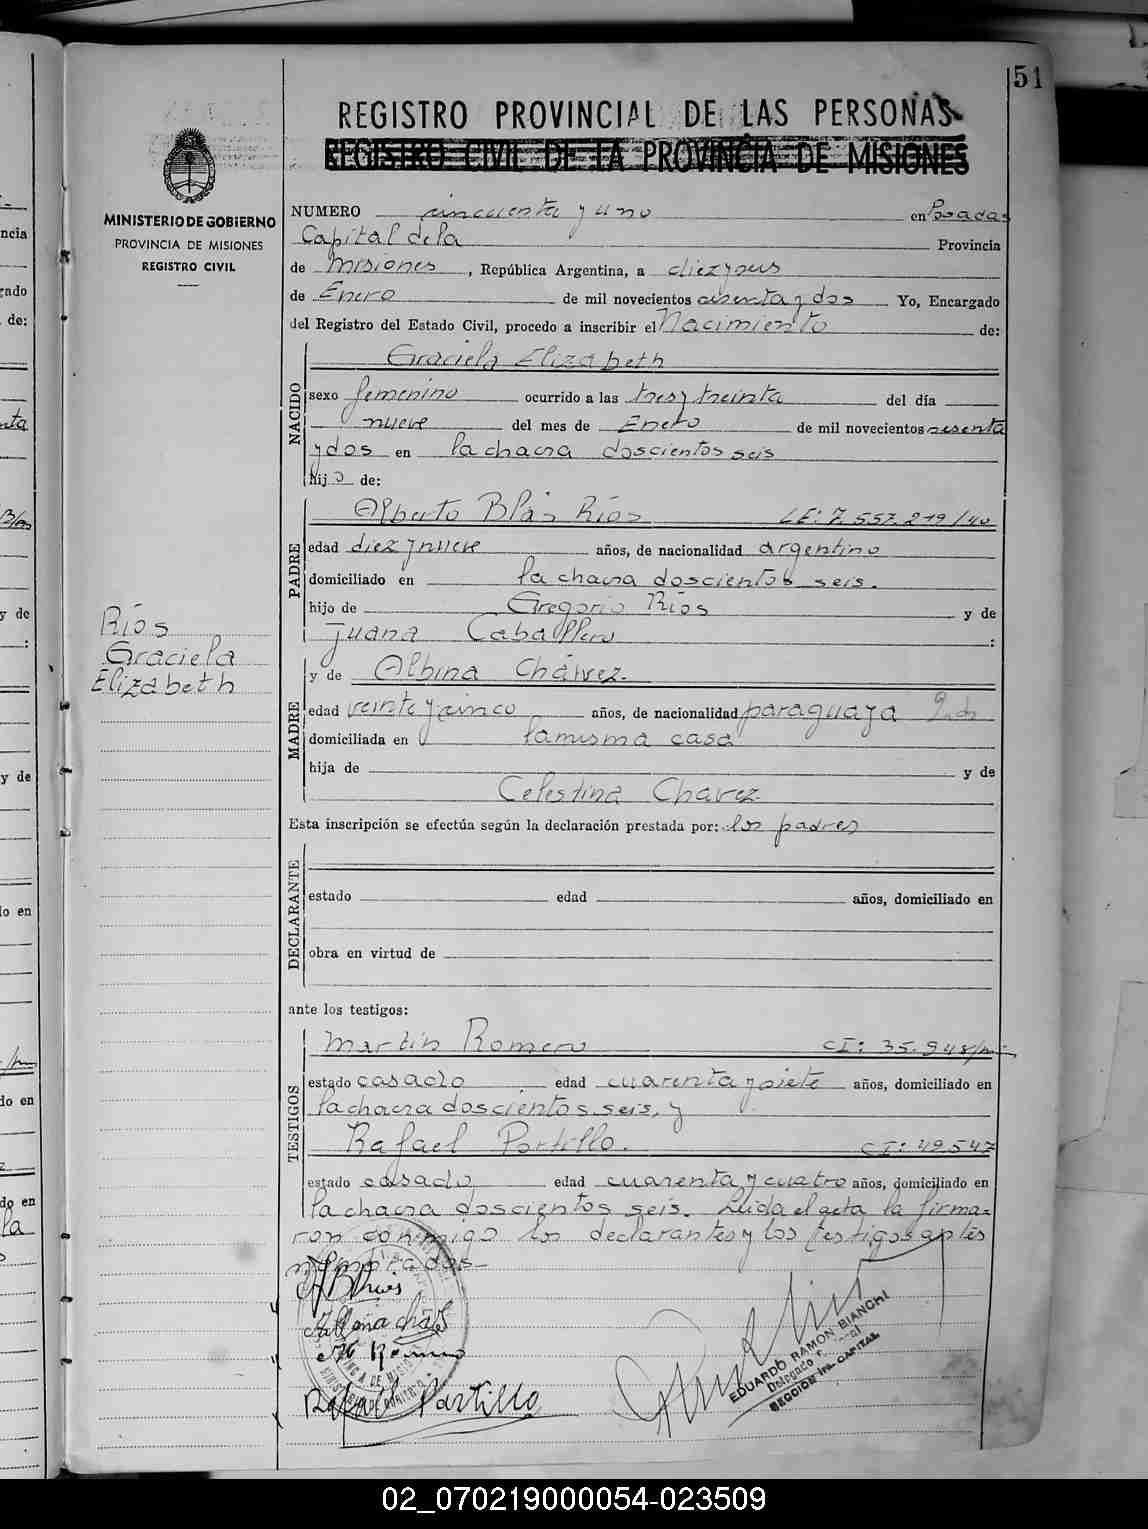 51
REGISTRO PROVINCIAL DE LAS PERSONAS
REGISTRO CIVIL DE LA PROVINCIA DE MISIONES
MINISTERIO DE GOBIERNO
PROVINCIA DE MISIONES
REGISTRO CIVIL
NUMERO cincuenta y uno en Posadas
Capital de la Provincia
de Misiones, República Argentina, a diez y seis
de Enero de mil novecientos sesenta y dos Yo, Encargado
del Registro del Estado Civil, procedo a inscribir el Nacimiento de:
NACIDO
Graciela Elizabeth
sexo femenino ocurrido a las tres y treinta del día
nueve del mes de Enero de mil novecientos sesenta
y dos en la chacra doscientos seis
hija de:
PADRE
Alberto Blás Ríos LE: 7.557.219/40
edad diez y nueve años, de nacionalidad argentino
domiciliado en la chacra doscientos seis.
hijo de Gregorio Ríos y de
Juana Caballero :
Ríos
Graciela
Elizabeth
MADRE
y de Albina Chávez.
edad veinte y cinco años, de nacionalidad paraguaya
domiciliada en la misma casa
hija de y de
Celestina Chavez
Esta inscripción se efectúa según la declaración prestada por: los padres
DECLARANTE
estado edad años, domiciliado en
obra en virtud de
ante los testigos:
TESTIGOS
Martín Romero CI: 35.948
estado casado edad cuarenta y siete años, domiciliado en
la chacra doscientos seis, y
Rafael Portillo. CI: 49.547
estado casado edad cuarenta y cuatro años, domiciliado en
la chacra doscientos seis. Leida el acta la firma=
ron conmigo los declarantes y los testigos antes
nombrados
Rafael Portillo
EDUARDO RAMON BIANCHI
Delegado
SECCION CAPITAL
02_070219000054-023509